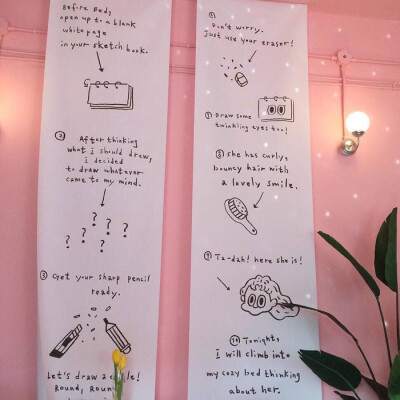 Before bed,
open up to a blank
white page
in your sketch book.
②
After thinking
what i should draw,
i decided
to draw whatever
came to my mind.
? ? ? ? ? ?
③ Get your sharp pencil
ready.
Let's draw
Round, Roun
Don't worry.
Just use your eraser!
Draw some
twinkling eyes too!
⑧ she has curly,
bouncy hair with
a lovely smile.
⑨ Ta-dah! here she is!
⑩ Tonight,
i will climb into
my cozy bed thinking
about her.